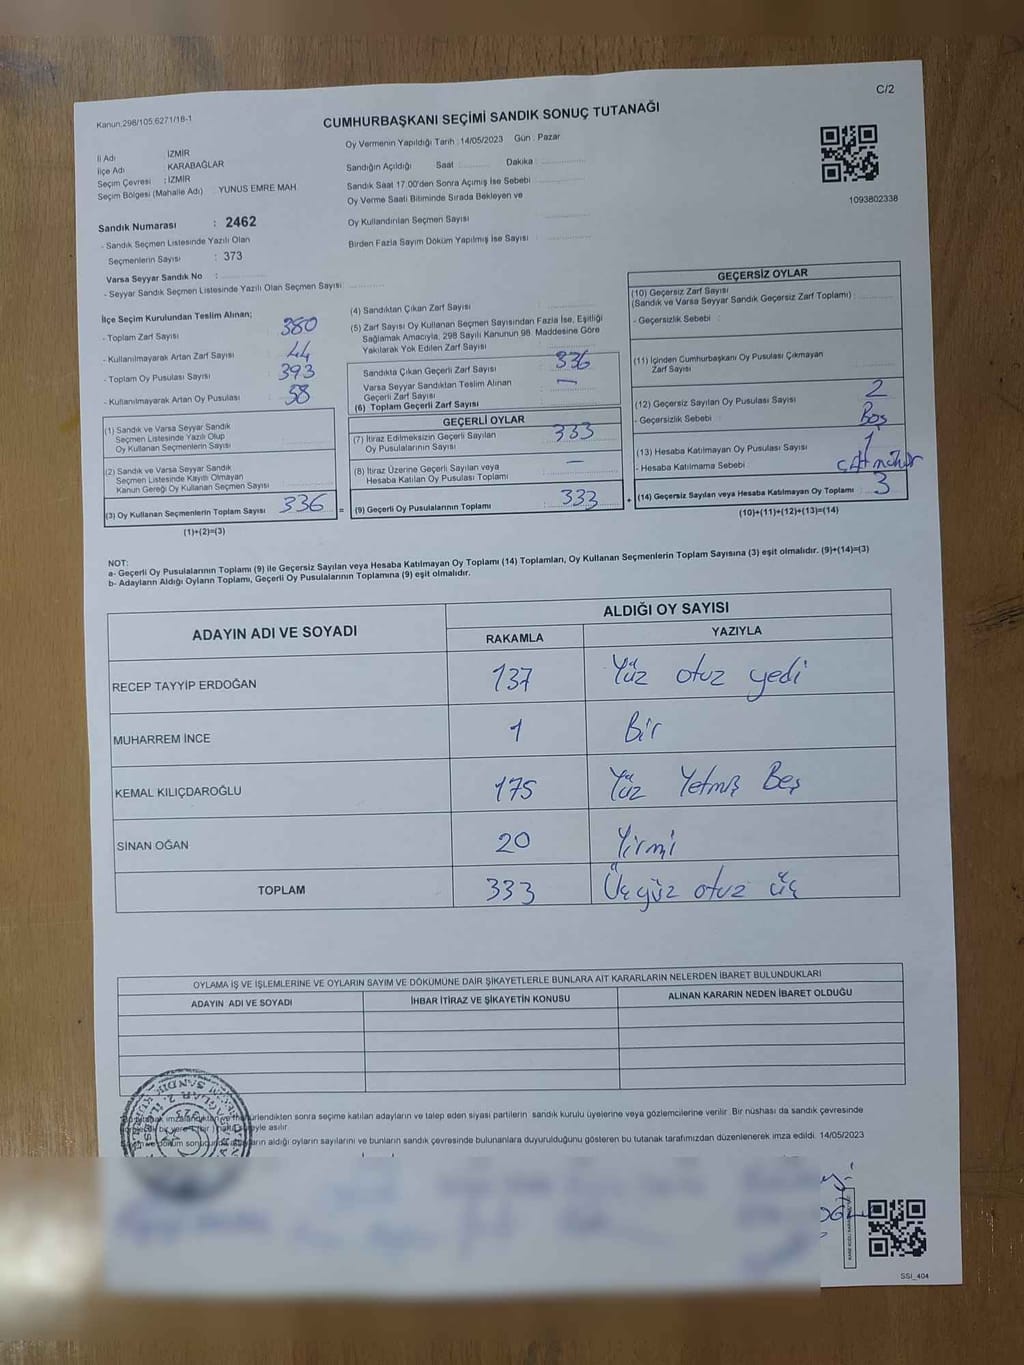 C/2
Kanun,298/105,6271/18-1
CUMHURBAŞKANI SEÇİMİ SANDIK SONUÇ TUTANAĞI
Oy Vermenin Yapıldığı Tarih : 14/05/2023 Gün : Pazar
İl Adı : İZMİR
İlçe Adı : KARABAĞLAR
Seçim Çevresi : İZMİR
Seçim Bölgesi (Mahalle Adı) : YUNUS EMRE MAH.
Sandığın Açıldığı Saat : Dakika :
Sandık Saat 17.00'den Sonra Açımış İse Sebebi :
Oy Verme Saati Bitiminde Sırada Bekleyen ve
Oy Kullandırılan Seçmen Sayısı :
Birden Fazla Sayım Döküm Yapılmış İse Sayısı :
1093802338
Sandık Numarası : 2462
- Sandık Seçmen Listesinde Yazılı Olan
Seçmenlerin Sayısı : 373
Varsa Seyyar Sandık No :
- Seyyar Sandık Seçmen Listesinde Yazılı Olan Seçmen Sayısı :
İlçe Seçim Kurulundan Teslim Alınan;
- Toplam Zarf Sayısı : 380
- Kullanılmayarak Artan Zarf Sayısı : 44
- Toplam Oy Pusulası Sayısı : 393
- Kullanılmayarak Artan Oy Pusulası : 58
(1) Sandık ve Varsa Seyyar Sandık
Seçmen Listesinde Yazılı Olup
Oy Kullanan Seçmenlerin Sayısı :
(2) Sandık ve Varsa Seyyar Sandık
Seçmen Listesinde Kayıtlı Olmayan
Kanun Gereği Oy Kullanan Seçmen Sayısı :
(3) Oy Kullanan Seçmenlerin Toplam Sayısı : 336 =
(1)+(2)=(3)
(4) Sandıktan Çıkan Zarf Sayısı :
(5) Zarf Sayısı Oy Kullanan Seçmen Sayısından Fazla İse, Eşitliği
Sağlamak Amacıyla, 298 Sayılı Kanunun 98. Maddesine Göre
Yakılarak Yok Edilen Zarf Sayısı :
Sandıkta Çıkan Geçerli Zarf Sayısı : 336
Varsa Seyyar Sandıktan Teslim Alınan
Geçerli Zarf Sayısı : —
(6) Toplam Geçerli Zarf Sayısı :
GEÇERLİ OYLAR
(7) İtiraz Edilmeksizin Geçerli Sayılan
Oy Pusulalarının Sayısı : 333
(8) İtiraz Üzerine Geçerli Sayılan veya
Hesaba Katılan Oy Pusulası Toplamı : —
(9) Geçerli Oy Pusulalarının Toplamı : 333 +
GEÇERSİZ OYLAR
(10) Geçersiz Zarf Sayısı
(Sandık ve Varsa Seyyar Sandık Geçersiz Zarf Toplamı) :
- Geçersizlik Sebebi :
(11) İçinden Cumhurbaşkanı Oy Pusulası Çıkmayan
Zarf Sayısı :
(12) Geçersiz Sayılan Oy Pusulası Sayısı : 2
- Geçersizlik Sebebi : Boş
(13) Hesaba Katılmayan Oy Pusulası Sayısı : 1
- Hesaba Katılmama Sebebi :
(14) Geçersiz Sayılan veya Hesaba Katılmayan Oy Toplamı : 3
(10)+(11)+(12)+(13)=(14)
NOT:
a- Geçerli Oy Pusulalarının Toplamı (9) ile Geçersiz Sayılan veya Hesaba Katılmayan Oy Toplamı (14) Toplamları, Oy Kullanan Seçmenlerin Toplam Sayısına (3) eşit olmalıdır. (9)+(14)=(3)
b- Adayların Aldığı Oyların Toplamı, Geçerli Oy Pusulalarının Toplamına (9) eşit olmalıdır.
ADAYIN ADI VE SOYADI ALDIĞI OY SAYISI
RAKAMLA YAZIYLA
RECEP TAYYİP ERDOĞAN 137 Yüz otuz yedi
MUHARREM İNCE 1 Bir
KEMAL KILIÇDAROĞLU 175 Yüz Yetmiş Beş
SİNAN OĞAN 20 Yirmi
TOPLAM 333 Üçyüz otuz üç
OYLAMA İŞ VE İŞLEMLERİNE VE OYLARIN SAYIM VE DÖKÜMÜNE DAİR ŞİKAYETLERLE BUNLARA AİT KARARLARIN NELERDEN İBARET BULUNDUKLARI
ADAYIN ADI VE SOYADI İHBAR İTİRAZ VE ŞİKAYETİN KONUSU ALINAN KARARIN NEDEN İBARET OLDUĞU
mühürlendikten sonra seçime katılan adayların ve talep eden siyasi partilerin sandık kurulu üyelerine veya gözlemcilerine verilir. Bir nüshası da sandık çevresinde
asılır.
aldığı oyların sayılarını ve bunların sandık çevresinde bulunanlara duyurulduğunu gösteren bu tutanak tarafımızdan düzenlenerek imza edildi. 14/05/2023
SSI_404